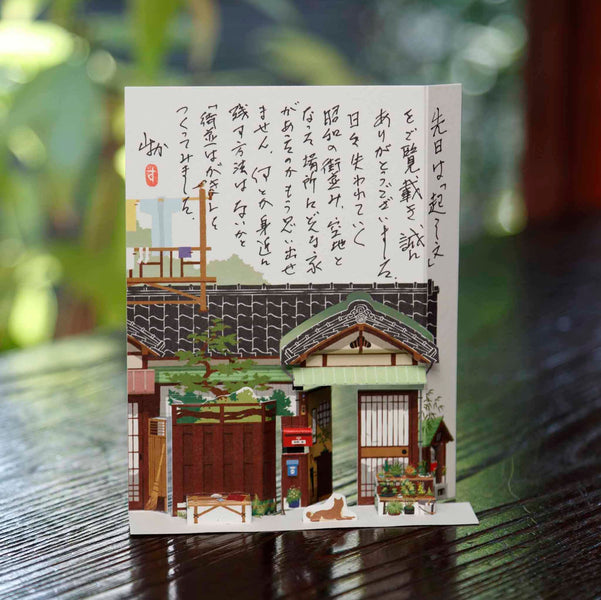 先日は「起こし文」
をご覧戴き、誠に
ありがとうございました。
日々失われていく
昭和の街並み、空地と
なった場所にどんな家
があったのかもう思い出せ
ません。何とか身近に
残す方法はないかと
「街並はがき」を
つくってみました。
す